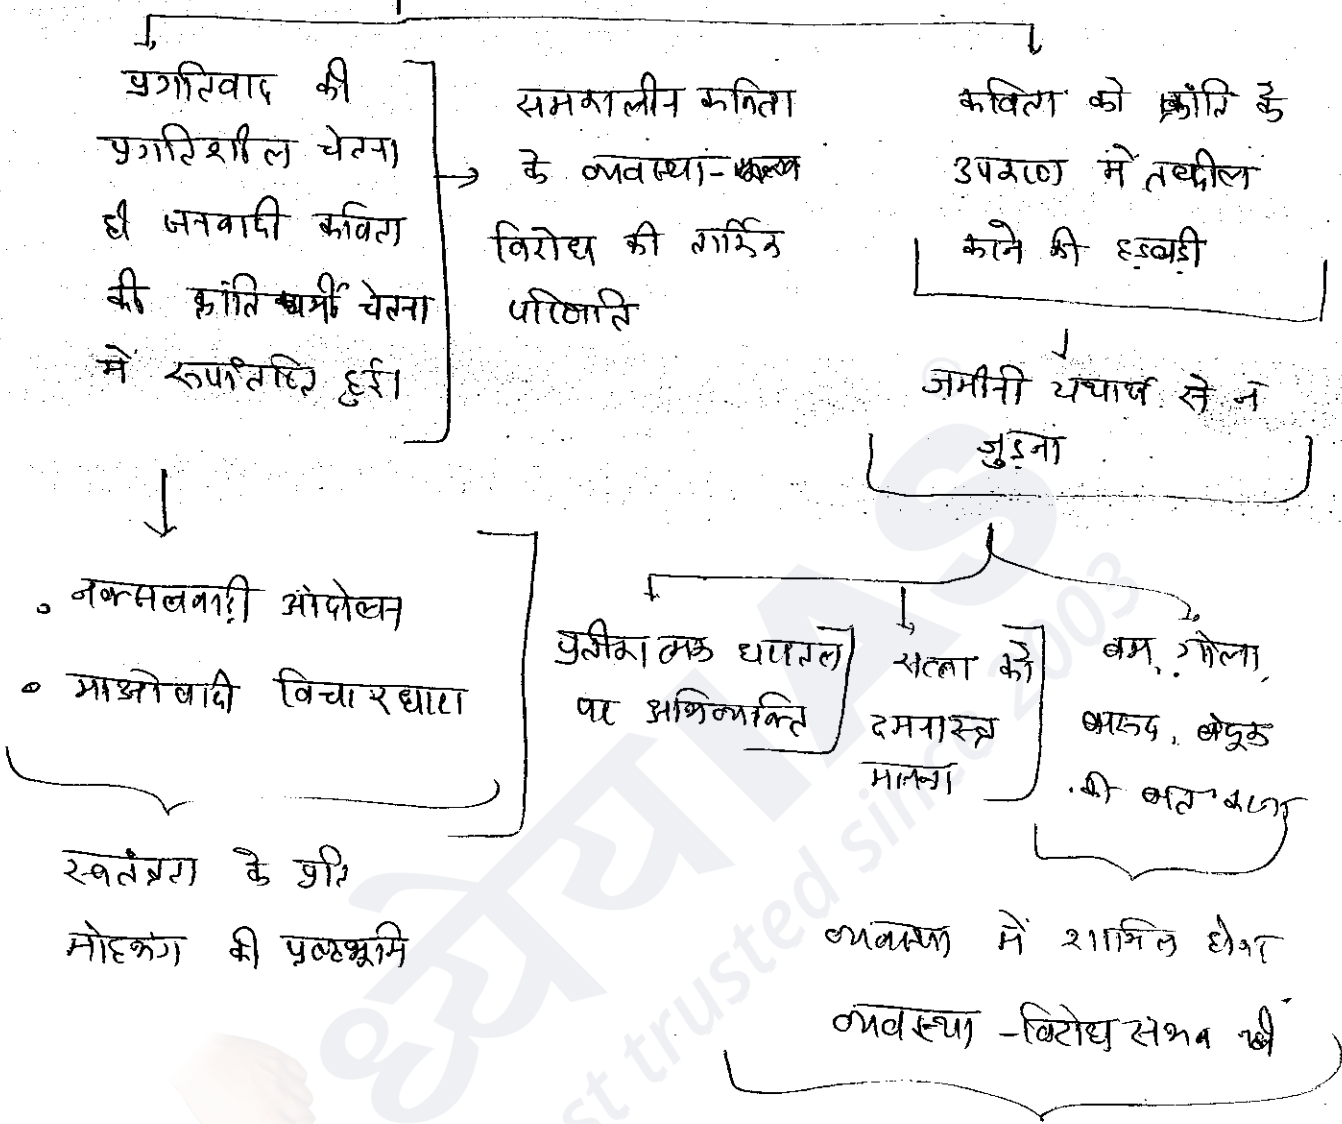 प्रगतिवाद की
प्रगतिशील चेतना
ही जनवादी कविता
की क्रांतिधर्मी चेतना
में रूपांतरित हुई।
समकालीन कविता
के व्यवस्था-
विरोध की तार्किक
परिणति
कविता को क्रांति के
उपकरण में तब्दील
करने की हड़बड़ी
जमीनी यथार्थ से न
जुड़ना
• नक्सलवादी आंदोलन
• माओवादी विचारधारा
स्वतंत्रता के प्रति
मोहभंग की पृष्ठभूमि
प्रतीकात्मक धरातल
पर अभिव्यक्ति
सत्ता को
दमनास्त्र
मानना
बम, गोला,
बारूद, बंदूक
की बात करना
व्यवस्था में शामिल होकर
व्यवस्था-विरोध संभव नहीं
ध्येय IAS
st trusted since 2003